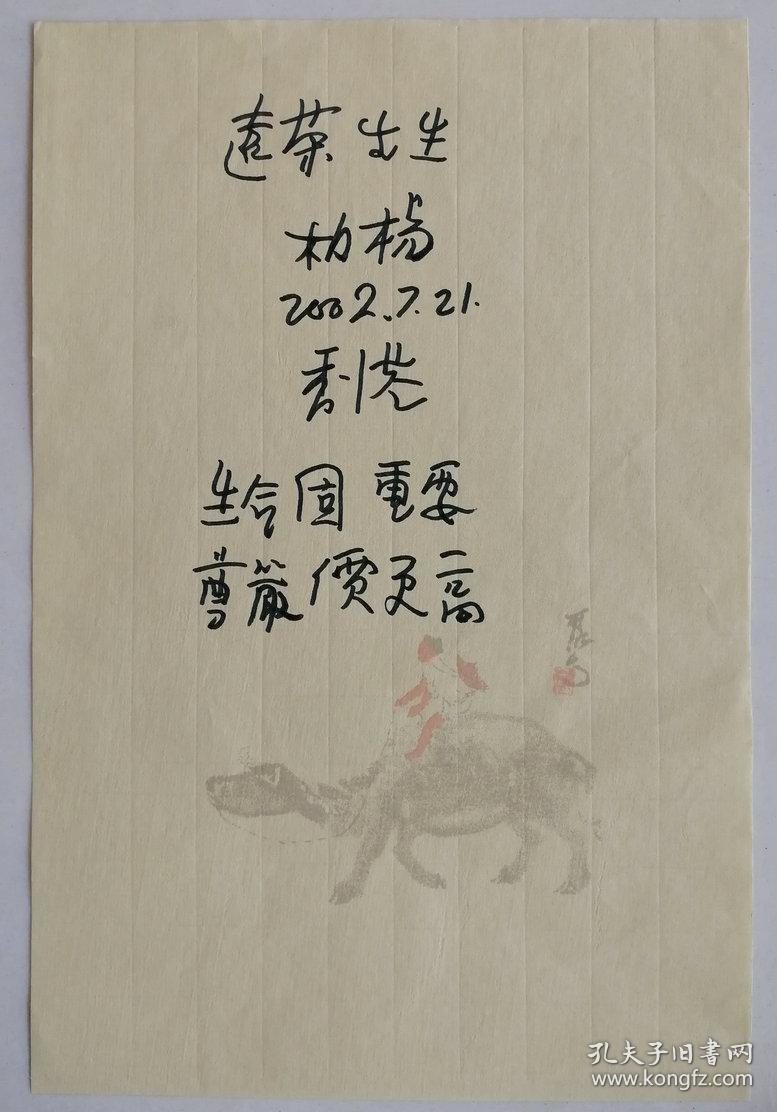 遠荣先生
柏楊
2002.7.21.
香港
生命固重要
尊嚴價更高
孔夫子旧書网
www.kongfz.com